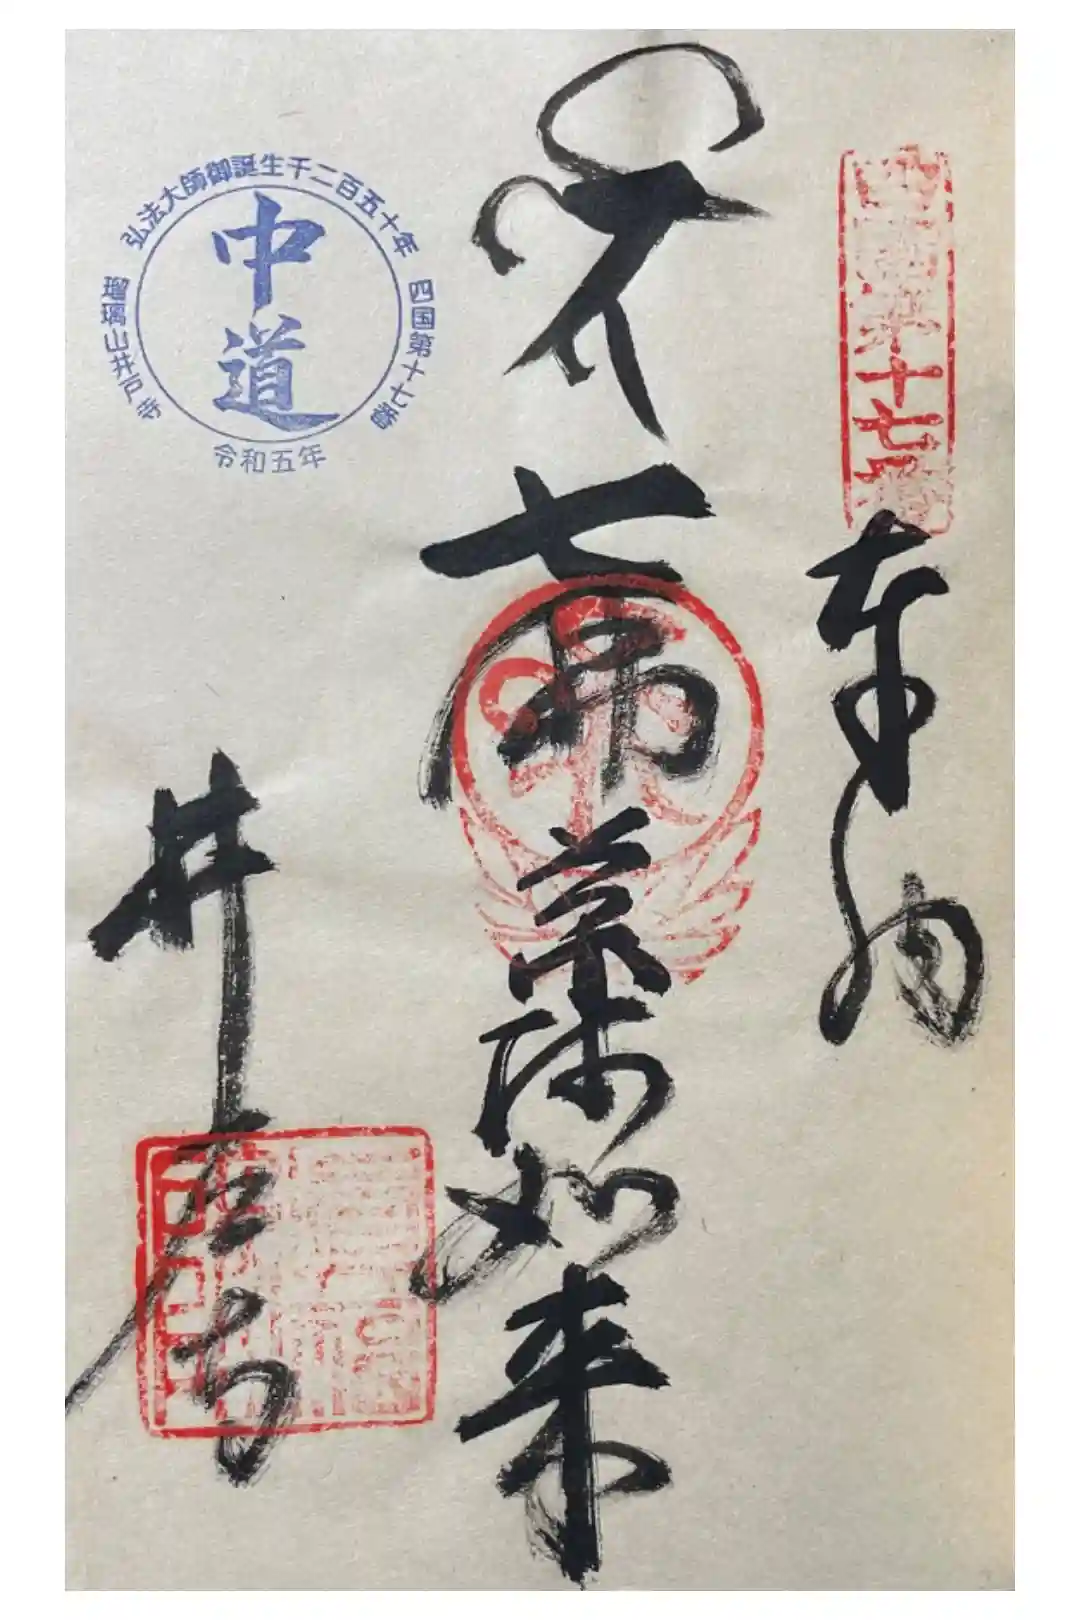 四国第十七番
奉納
七佛薬師如来
井戸寺
弘法大師御誕生千二百五十年
四国第十七番
瑠璃山井戸寺
中道
令和五年